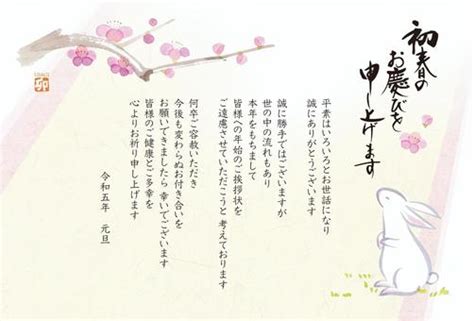 初春の
お慶びを
申し上げます
平素はいろいろとお世話になり
誠にありがとうございます
誠に勝手ではございますが
世の中の流れもあり
本年をもちまして
皆様への年始のご挨拶状を
ご遠慮させていただこうと考えております
何卒ご容赦いただき
今後も変わらぬお付き合いを
お願いできましたら幸いでございます
皆様のご健康とご多幸を
心よりお祈り申し上げます
令和五年 元旦
卯